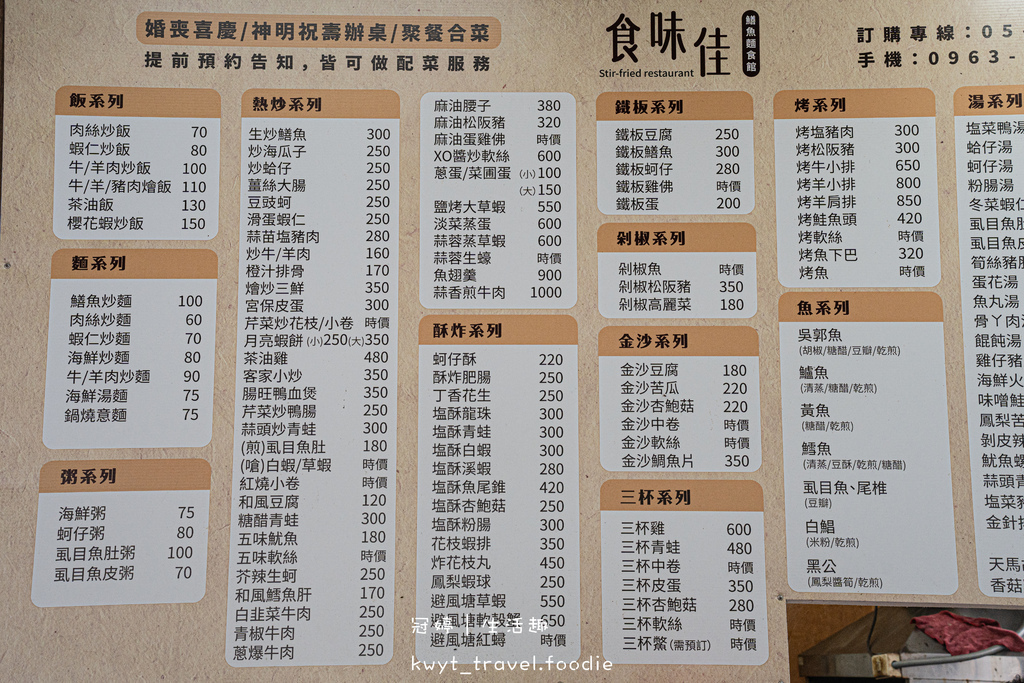 婚喪喜慶/神明祝壽辦桌/聚餐合菜
提前預約告知,皆可做配菜服務
食味佳
鱔魚麵食館
Stir-fried restaurant
訂購專線:05
手機:0963-
飯系列
肉絲炒飯 70
蝦仁炒飯 80
牛/羊肉炒飯 100
牛/羊/豬肉燴飯 110
茶油飯 130
櫻花蝦炒飯 150
麵系列
鱔魚炒麵 100
肉絲炒麵 60
蝦仁炒麵 70
海鮮炒麵 80
牛/羊肉炒麵 90
海鮮湯麵 75
鍋燒意麵 75
粥系列
海鮮粥 75
蚵仔粥 80
虱目魚肚粥 100
虱目魚皮粥 70
熱炒系列
生炒鱔魚 300
炒海瓜子 250
炒蛤仔 250
薑絲大腸 250
豆豉蚵 250
滑蛋蝦仁 250
蒜苗塩豬肉 280
炒牛/羊肉 160
橙汁排骨 170
燴炒三鮮 350
宮保皮蛋 300
芹菜炒花枝/小卷 時價
月亮蝦餅 (小)250(大)350
茶油雞 480
客家小炒 350
腸旺鴨血煲 350
芹菜炒鴨腸 250
蒜頭炒青蛙 300
(煎)虱目魚肚 180
(嗆)白蝦/草蝦 時價
紅燒小卷 時價
和風豆腐 120
糖醋青蛙 300
五味魷魚 180
五味軟絲 時價
芥辣生蚵 250
和風鱈魚肝 170
白韭菜牛肉 250
青椒牛肉 250
蔥爆牛肉 250
麻油腰子 380
麻油松阪豬 320
麻油蛋雞佛 時價
XO醬炒軟絲 600
蔥蛋/菜圃蛋 (小)100
(大)150
鹽烤大草蝦 550
淡菜蒸蛋 600
蒜蓉蒸草蝦 600
蒜蓉生蠔 時價
魚翅羹 900
蒜香煎牛肉 1000
酥炸系列
蚵仔酥 220
酥炸肥腸 250
丁香花生 250
塩酥龍珠 300
塩酥青蛙 300
塩酥白蝦 300
塩酥溪蝦 280
塩酥魚尾錐 420
塩酥杏鮑菇 250
塩酥粉腸 300
花枝蝦排 350
炸花枝丸 450
鳳梨蝦球 250
避風塘草蝦 550
避風塘軟殼蟹 550
避風塘紅蟳 時價
鐵板系列
鐵板豆腐 250
鐵板鱔魚 300
鐵板蚵仔 280
鐵板雞佛 時價
鐵板蛋 200
剁椒系列
剁椒魚 時價
剁椒松阪豬 350
剁椒高麗菜 180
金沙系列
金沙豆腐 180
金沙苦瓜 220
金沙杏鮑菇 220
金沙中卷 時價
金沙軟絲 時價
金沙鯛魚片 350
三杯系列
三杯雞 600
三杯青蛙 480
三杯中卷 時價
三杯皮蛋 350
三杯杏鮑菇 280
三杯軟絲 時價
三杯鱉(需預訂) 時價
烤系列
烤塩豬肉 300
烤松阪豬 300
烤牛小排 650
烤羊小排 800
烤羊肩排 850
烤鮭魚頭 420
烤軟絲 時價
烤魚下巴 320
烤魚 時價
魚系列
吳郭魚
(胡椒/糖醋/豆瓣/乾煎)
鱸魚
(清蒸/糖醋/乾煎)
黃魚
(糖醋/乾煎)
鱈魚
(清蒸/豆酥/乾煎/糖醋)
虱目魚、尾椎
(豆瓣)
白鯧
(米粉/乾煎)
黑公
(鳳梨醬筍/乾煎)
湯系列
塩菜鴨湯
蛤仔湯
蚵仔湯
粉腸湯
冬菜蝦仁
虱目魚
虱目魚皮
筍絲豬
蛋花湯
魚丸湯
骨丫肉
餛飩湯
雞仔豬
海鮮火
味噌鮭
鳳梨苦
剝皮辣
魷魚螺
蒜頭
塩菜
金針
天馬
香菇
冠婷の生活趣
kwyt_travel.foodie